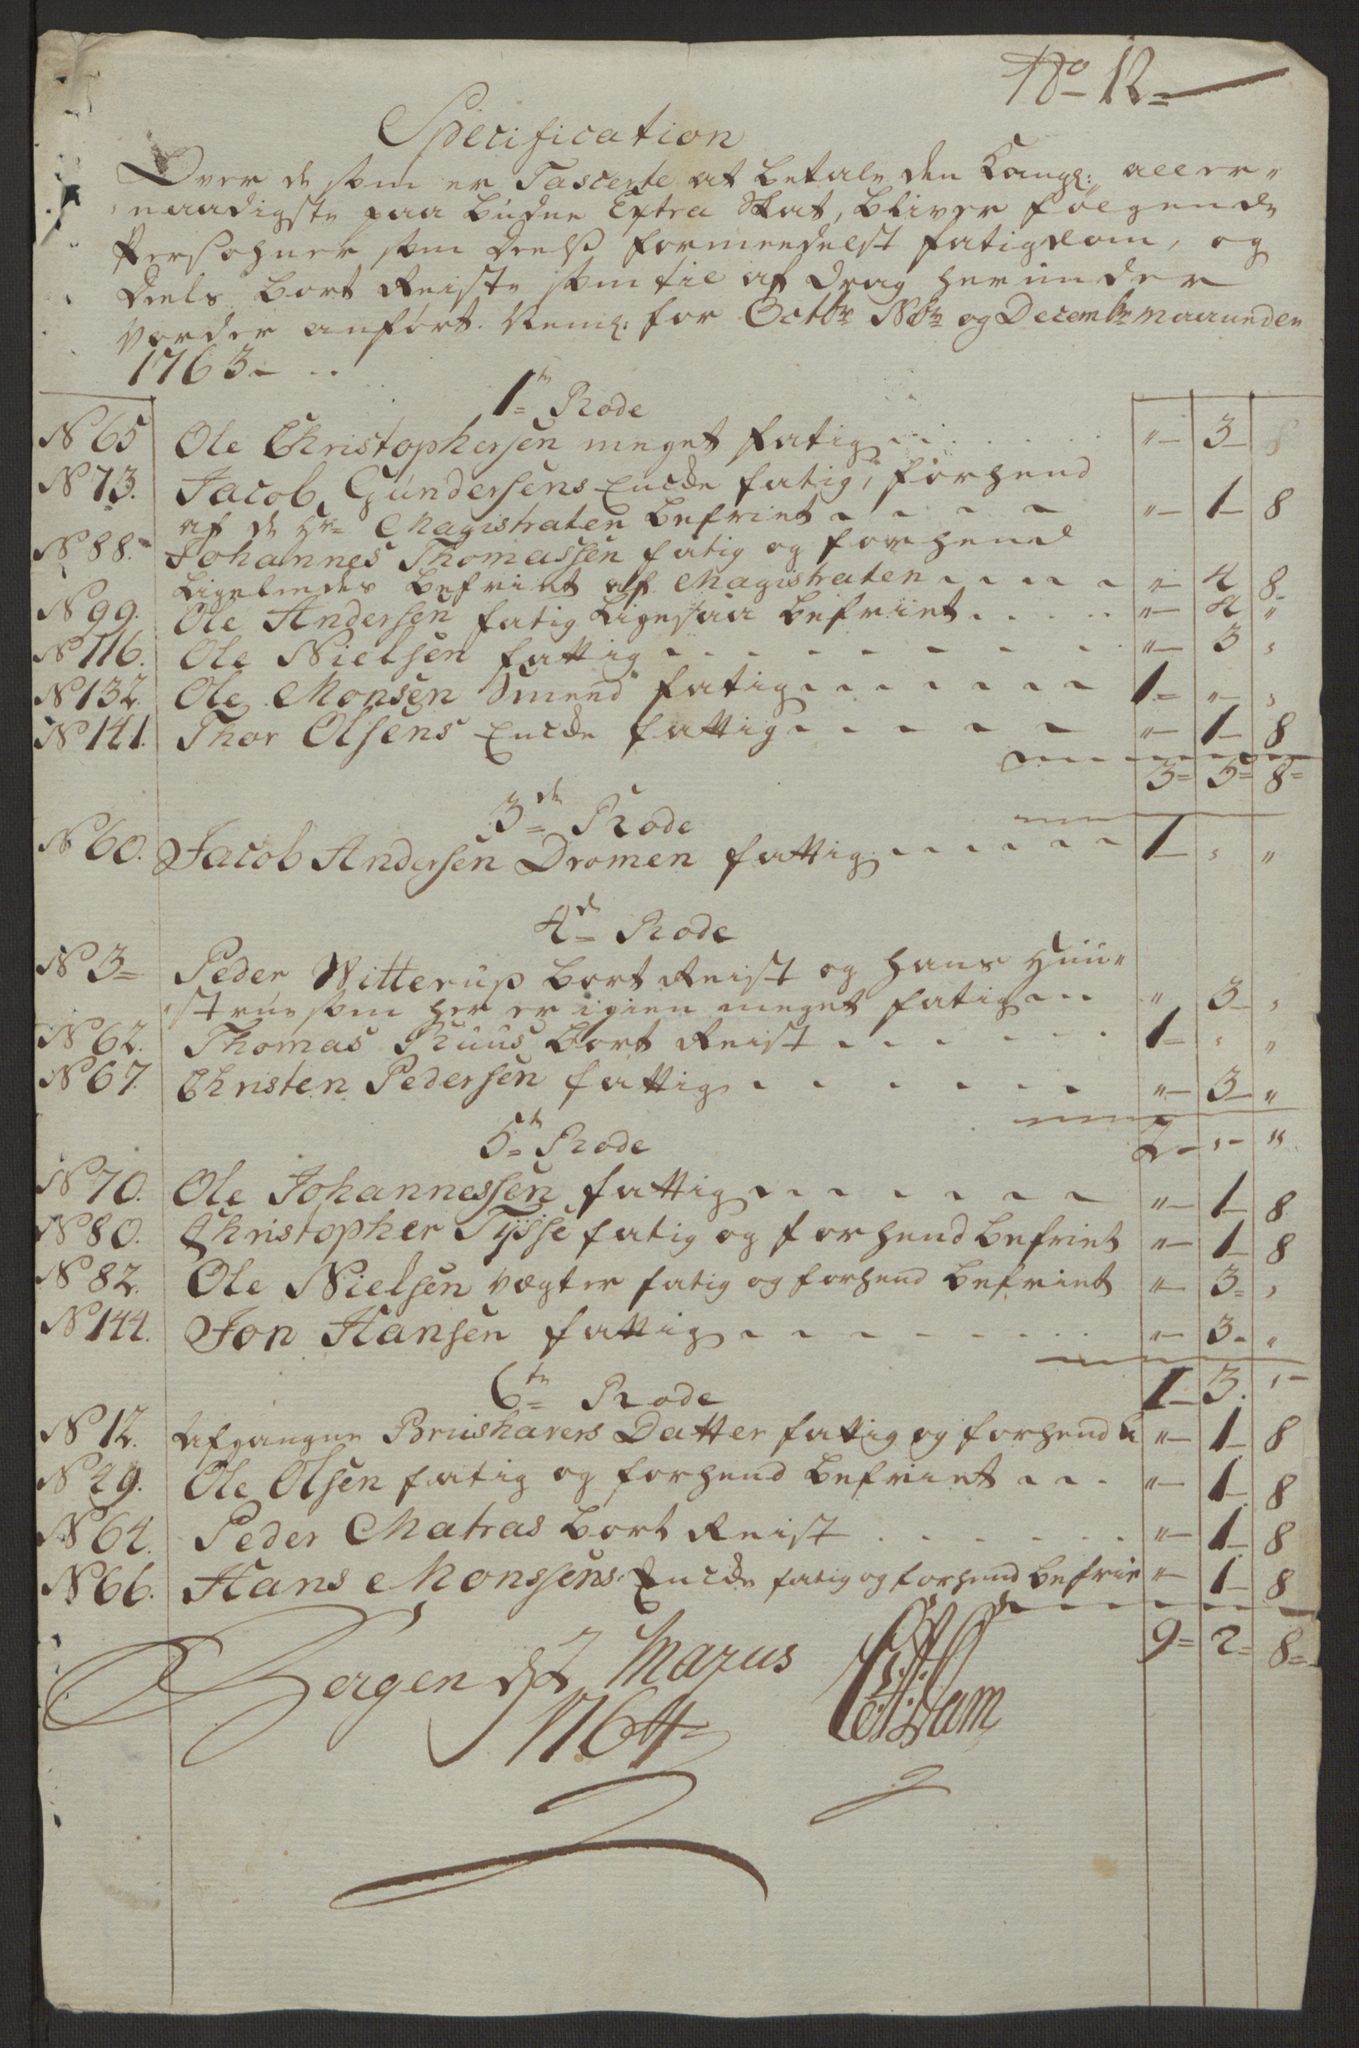 No 12
Specification
Over de som er Taxerte at betale den Kongl: aller¬
naadigste paa budne Extra Skat, bliver følgende
Persohner som deels formedelst fatigdom, og
deels bort Reiste som til af drag herunder
vorder anført. Neml: for Octbr Nbr og Decembr maaneder
1763
1te Rode
N 65 Ole Christophersen meget fatig " 3 8
N 73. Jacob Gundersens Encke fatig, forhend
af de Hr Magistraten befriet " 1 8
N 88. Johannes Thomassen fatig og forhend
ligeledes befriet af Magistraten " 4 8
N 99. Ole Andersen fatig ligesaa befriet " 4 "
N 116. Ole Nielsen fattig " 3 "
N 132. Ole Monsen Smed fatig 1 " "
N 141. Thor Olsens Encke fattig " 1 8
3 5 8
3de Rode
N 60. Jacob Andersen Dromen fattig 1 " "
4de Rode
N 3 Peder Witterup bort Reist og hans Huu¬
strue som her er igien meget fatig " 3 "
N 62. Thomas Ruus bort Reist 1 " "
N 67. Christen Pedersen fattig " 3 "
2 " "
5te Rode
N 70. Ole Johannessen fattig " 1 8
N 80. Christopher Tysse fatig og forhend befriet " 1 8
N 82. Ole Nielsen vægter fatig og forhend befriet " 3 "
N 144. Jon Hansen fattig " 3 "
1 3 "
6te Rode
N 12. Afgangne Brushavers Datter fattig og forhend b " 1 8
N 29. Ole Olsen fatig og forhend befriet " 1 8
N 64. Peder Matras bort Reist " 1 8
N 66. Hans Monssens Encke fatig og forhend befrie " 1 8
9 2 8
Bergen d 2 Marus
1764
Dam